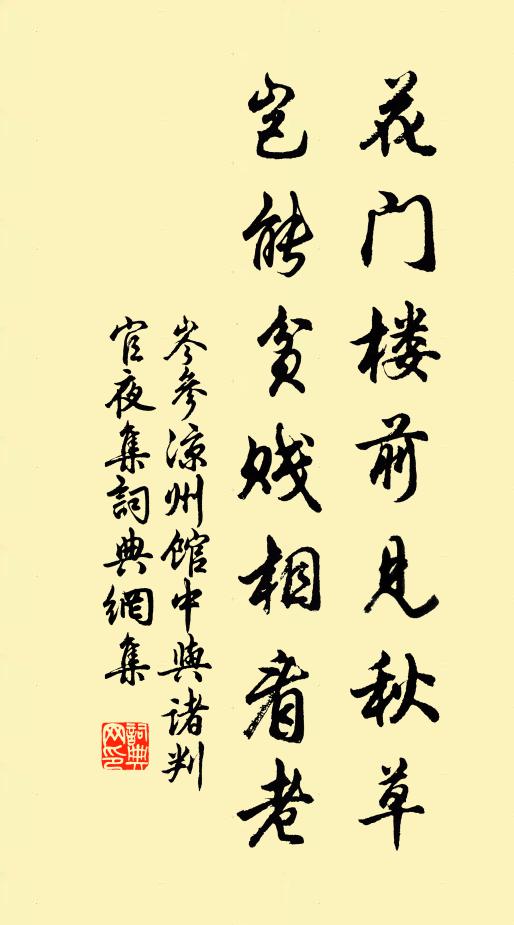 花门楼前见秋草
岂能贫贱相看老
岑参凉州馆中與诸判
官夜集詞典網集
詞典网印